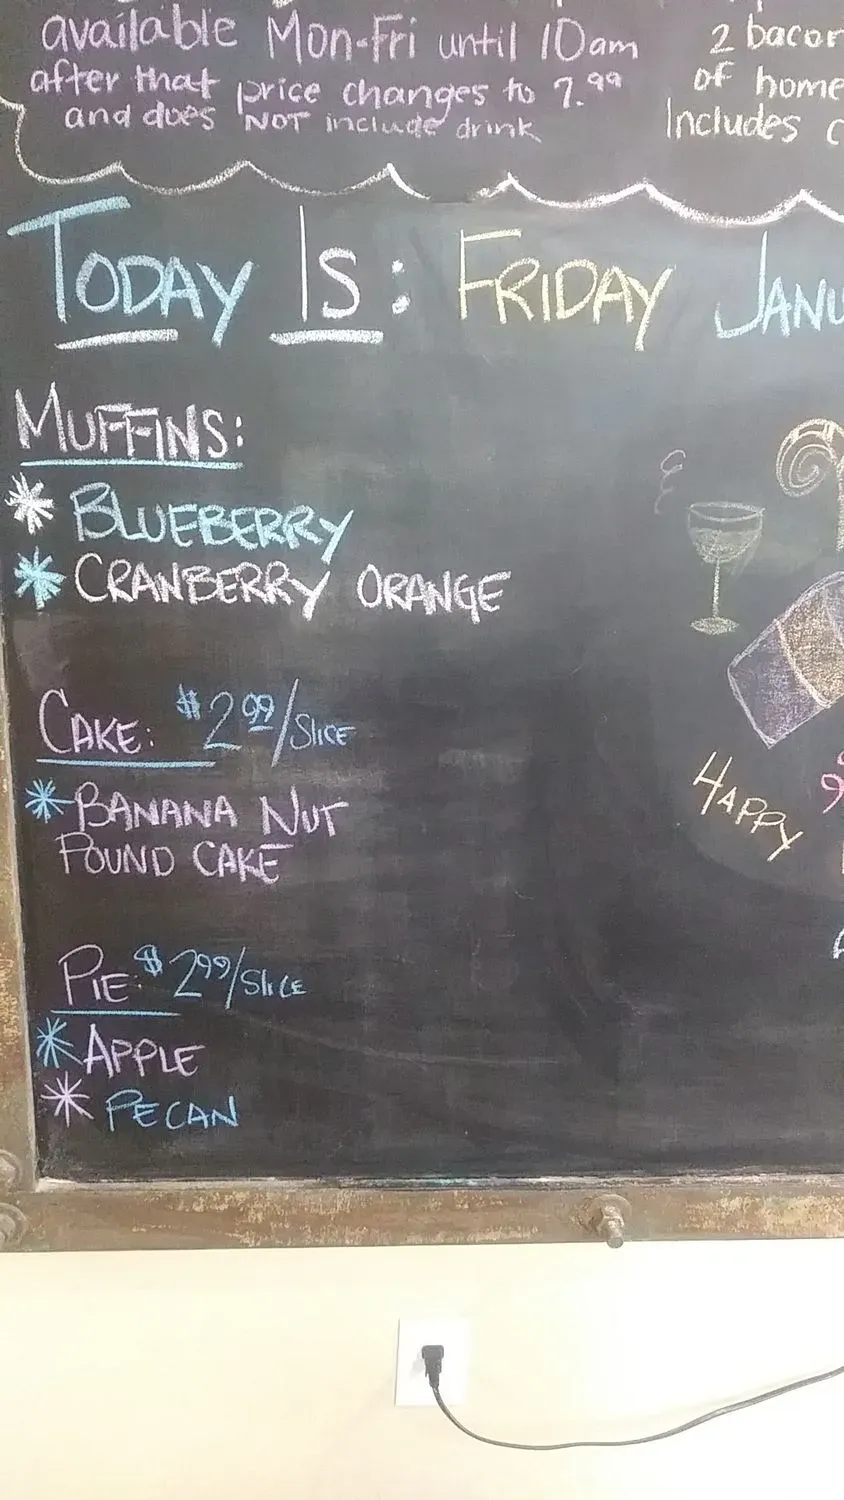 available Mon-Fri until 10am
after that price changes to 7.99
and does NOT include drink
2 bacon
of home
Includes
TODAY IS: FRIDAY JANU
MUFFINS:
* BLUEBERRY
* CRANBERRY ORANGE
CAKE: $2.99/SLICE
* BANANA NUT
POUND CAKE
HAPPY
PIE: $2.99/SLICE
* APPLE
* PECAN